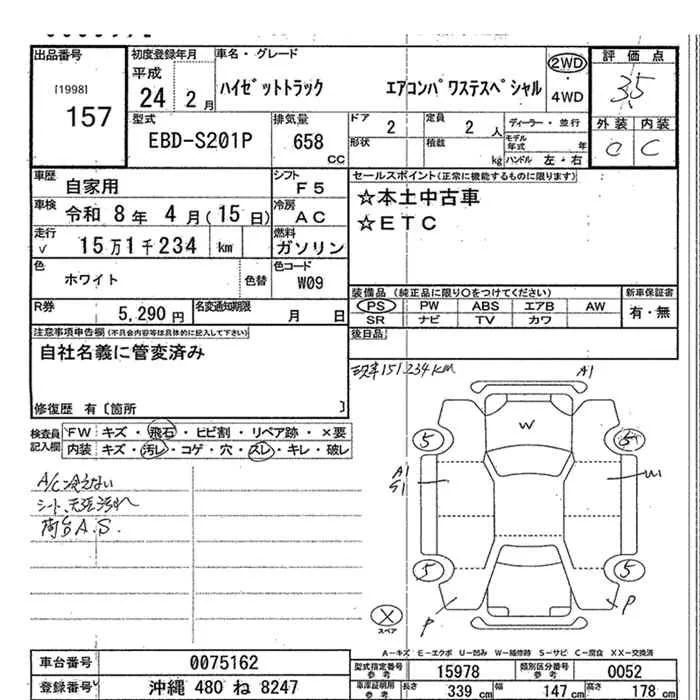 出品番号
[1998]
157
初度登録年月
平成
24 2月
車名・グレード
ハイゼットトラック エアコンパワステスペシャル
2WD
4WD
評価点
3.5
外装 内装
C C
型式
EBD-S201P
排気量
658
CC
ドア
2
定員
2 人
形状
積載
kg
ディーラー・並行
モデル年式 年
ハンドル 左・右
車歴
自家用
シフト
F5
車検
令和 8年 4月(15日)
冷房
AC
走行
√ 15万1千234 km
燃料
ガソリン
色
ホワイト
色替
色コード
W09
R券
5,290円
名変通知期限
月 日
セールスポイント(正常に機能するものに限ります)
☆本土中古車
☆ETC
装備品(純正品に限り○をつけてください)
PS PW ABS エアB AW
SR ナビ TV カワ
新車保証書
有・無
後日品
注意事項申告欄(不具合内容等は具体的に記入して下さい)
自社名義に管変済み
修復歴 有〔箇所 〕
検査員記入欄
FW キズ・飛石・ヒビ割・リペア跡・×要
内装 キズ・汚レ・コゲ・穴・スレ・キレ・破レ
A/C冷えない
シート、天張汚れ
A.S.
151,234km
A1
W
5 5
A1
S1
W
5 5
P P
X
スペア
A-キズ E-エクボ U-凹み W-補修跡 S-サビ C-腐食 XX-交換済
車台番号
0075162
登録番号
沖縄 480 ね 8247
型式指定番号
参考
15978
類別区分番号
参考
0052
車庫証明用
参考
長さ 339 cm
幅 147 cm
高さ 178 cm